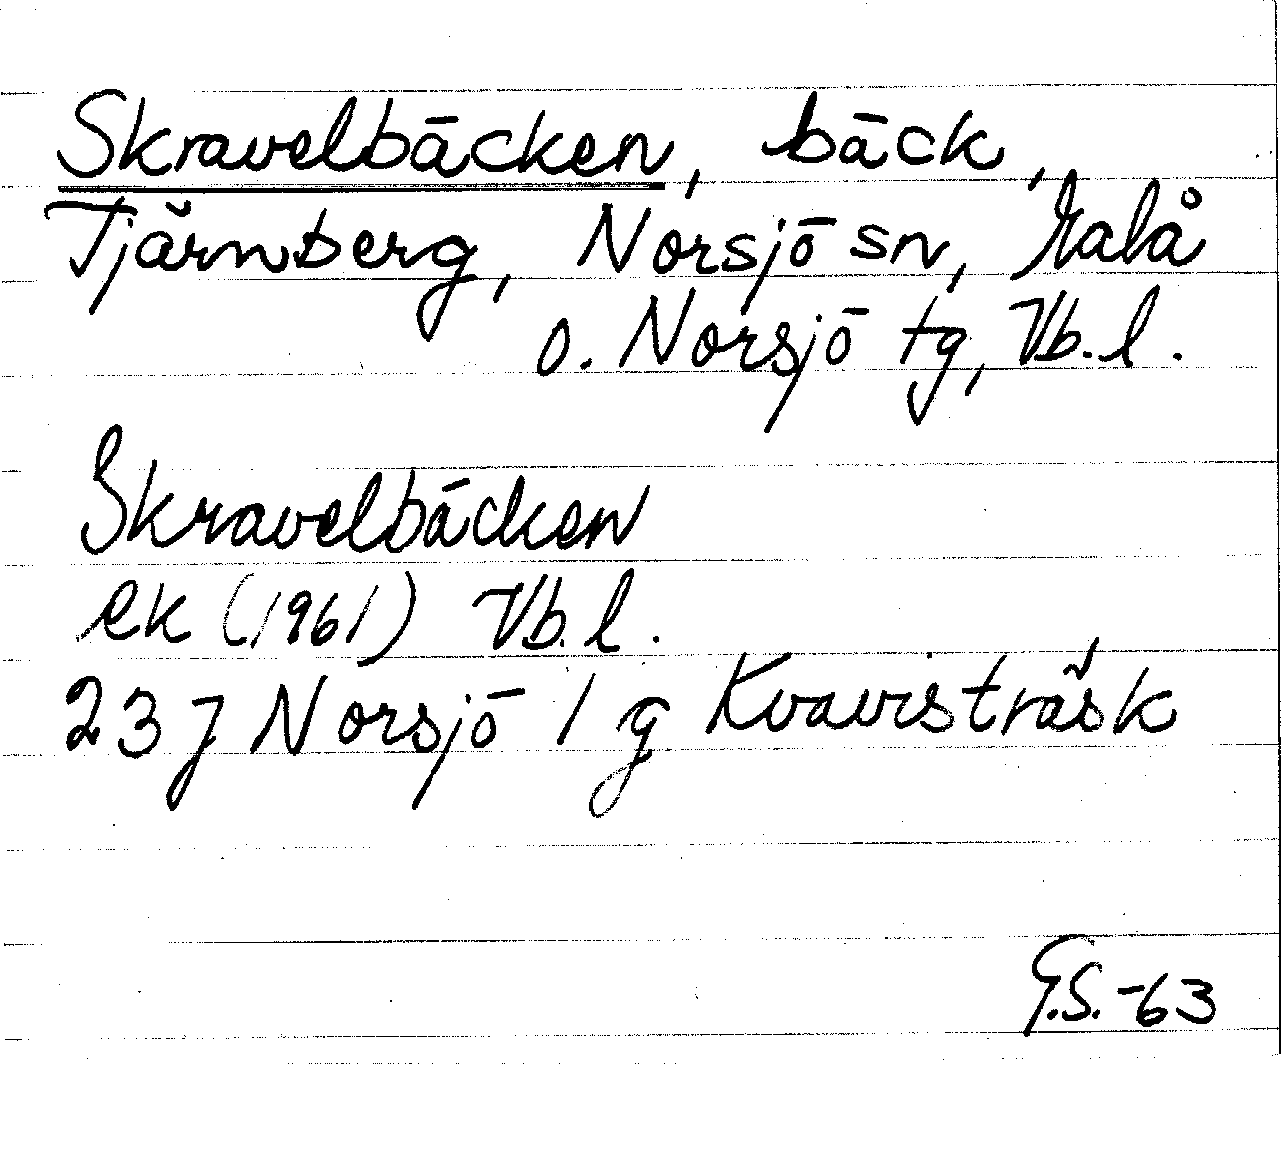 Skravelbäcken, bäck,
Tjärnberg, Norsjö sn, Malå
o. Norsjö tg, Vb. l.
Skravelbäcken
ek (1961) Vb. l.
23 J Norsjö 1 g Kvavisträsk
G.S. -63